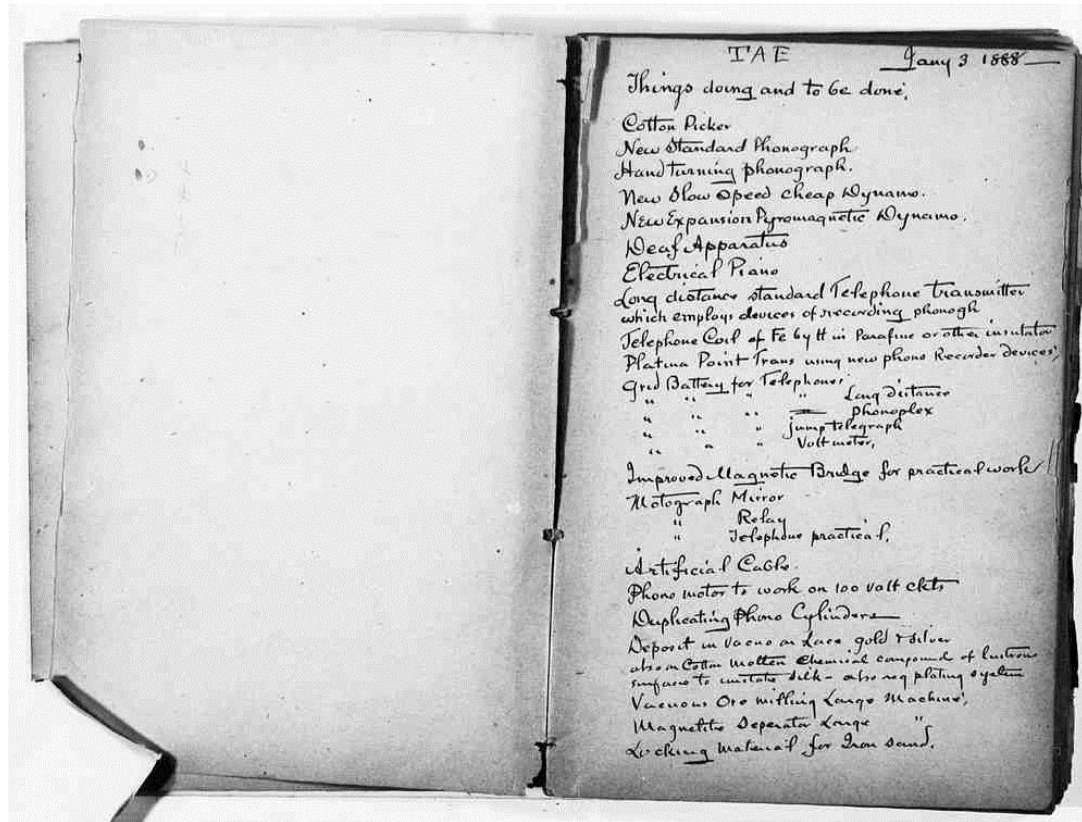 TAE Jany 3 1888
Things doing and to be done,
Cotton Picker
New Standard Phonograph
Hand turning phonograph.
New Slow Speed cheap Dynamo.
New Expansion Pyromagnetic Dynamo.
Deaf Apparatus
Electrical Piano
Long distance standard Telephone transmitter
which employs devices of recording phonogh
Telephone Coil of Fe by tt in Parafine or other insulator
Platina Point Trans using new phono Recorder devices,
Grid Battery for Telephones,
" " " " Long distance
" " " — phonoplex
" " " jump telegraph
" " " Voltmeter,
Improved Magnetic Bridge for practical work
Motograph Mirror
" Relay
" Telephone practical,
Artificial Cable.
Phono motor to work on 100 volt ckts
Duplicating Phono Cylinders
Deposit in vacuo on lace gold & silver
also on Cotton molten chemical compound of lustrous
surfaces to imitate silk - also reg plating system
Vacuous Ore milling Large Machine,
Magnetic Seperator Large "
Locking material for Iron sand,